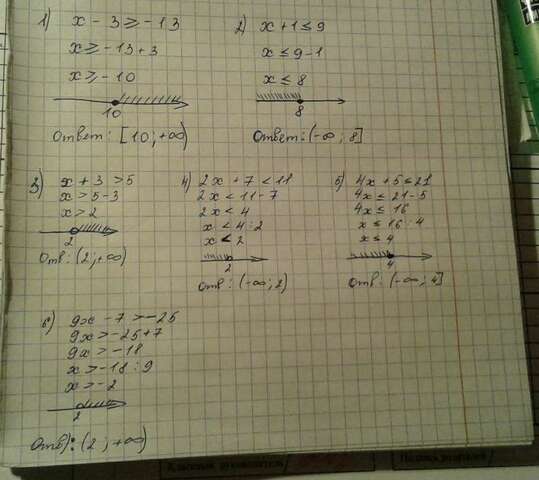 1) x - 3 ≥ -13
x ≥ -13+3
x ≥ -10
10
Ответ: [10; +∞)
2) x+1 ≤ 9
x ≤ 9-1
x ≤ 8
8
Ответ: (-∞; 8]
3) x + 3 > 5
x > 5-3
x > 2
2
Отв: (2; +∞)
4) 2x + 7 < 11
2x < 11-7
2x < 4
x < 4:2
x < 2
2
Отв: (-∞; 2)
5) 4x + 5 ≤ 21
4x ≤ 21-5
4x ≤ 16
x ≤ 16:4
x ≤ 4
4
Отв: (-∞; 4]
6) 9x - 7 > -25
9x > -25+7
9x > -18
x > -18:9
x > -2
2
Отв: (2; +∞)
Классный руководитель
Подпись родителей